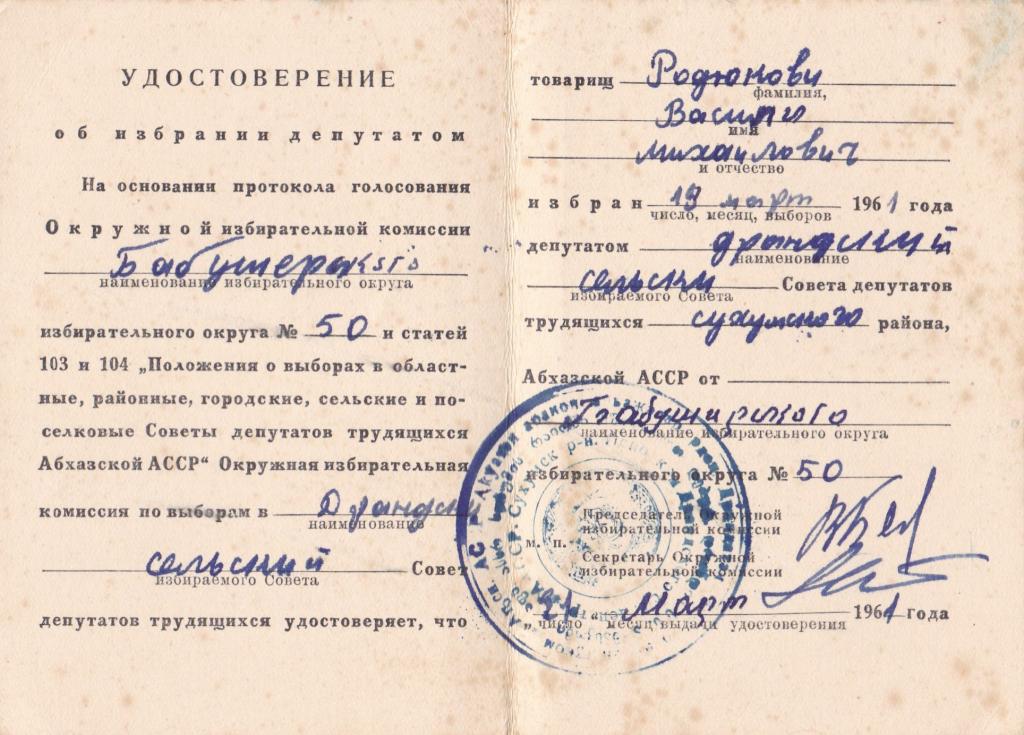 УДОСТОВЕРЕНИЕ
об избрании депутатом
На основании протокола голосования
Окружной избирательной комиссии
Бабушерского
наименование избирательного округа
избирательного округа № 50 и статей
103 и 104 „Положения о выборах в област-
ные, районные, городские, сельские и по-
селковые Советы депутатов трудящихся
Абхазской АССР“ Окружная избирательная
комиссия по выборам в Драндск
наименование
сельский Совет
избираемого Совета
депутатов трудящихся удостоверяет, что
товарищ Родюнову
фамилия,
Васили
имя
михаилович
и отчество
избран 19 март 1961 года
число, месяц, выборов
депутатом драндский
наименование
сельски Совета депутатов
избираемого Совета
трудящихся сухумского района,
Абхазской АССР от
Бабушерского
наименование избирательного округа
избирательного округа № 50
Председатель Окружной
избирательной комиссии
м. п.
Секретарь Окружной
избирательной комиссии
„21“ Март 1961 года
число месяц выдачи удостоверения